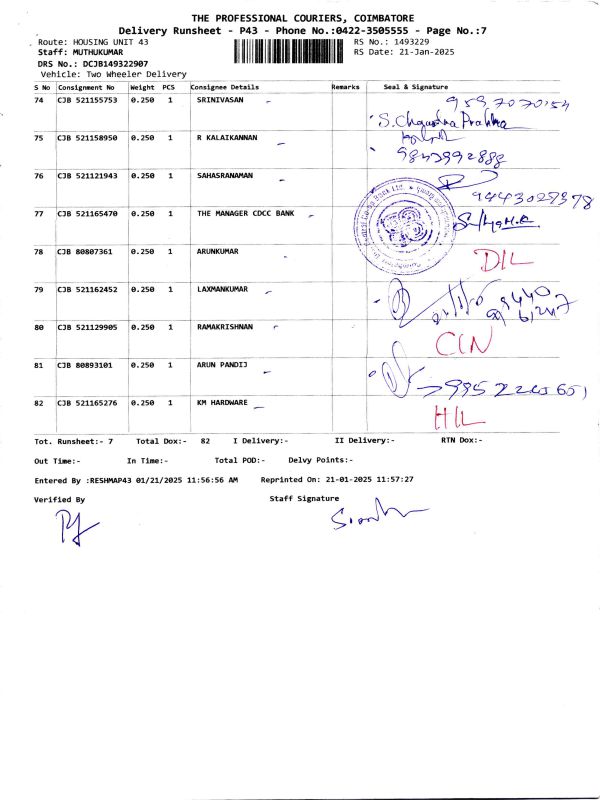 THE PROFESSIONAL COURIERS, COIMBATORE
Delivery Runsheet - P43 - Phone No.:0422-3505555 - Page No.:7
Route: HOUSING UNIT 43 RS No.: 1493229
Staff: MUTHUKUMAR RS Date: 21-Jan-2025
DRS No.: DCJB149322907
Vehicle: Two Wheeler Delivery
S No Consignment No Weight PCS Consignee Details Remarks Seal & Signature
74 CJB 521155753 0.250 1 SRINIVASAN
75 CJB 521158950 0.250 1 R KALAIKANNAN
9843992888
76 CJB 521121943 0.250 1 SAHASRANAMAN
9443029378
77 CJB 521165470 0.250 1 THE MANAGER CDCC BANK
78 CJB 80807361 0.250 1 ARUNKUMAR D/L
79 CJB 521162452 0.250 1 LAXMANKUMAR
80 CJB 521129905 0.250 1 RAMAKRISHNAN C/N
81 CJB 80893101 0.250 1 ARUN PANDIJ
82 CJB 521165276 0.250 1 KM HARDWARE H/L
Tot. Runsheet:- 7 Total Dox:- 82 I Delivery:- II Delivery:- RTN Dox:-
Out Time:- In Time:- Total POD:- Delvy Points:-
Entered By :RESHMAP43 01/21/2025 11:56:56 AM Reprinted On: 21-01-2025 11:57:27
Verified By Staff Signature